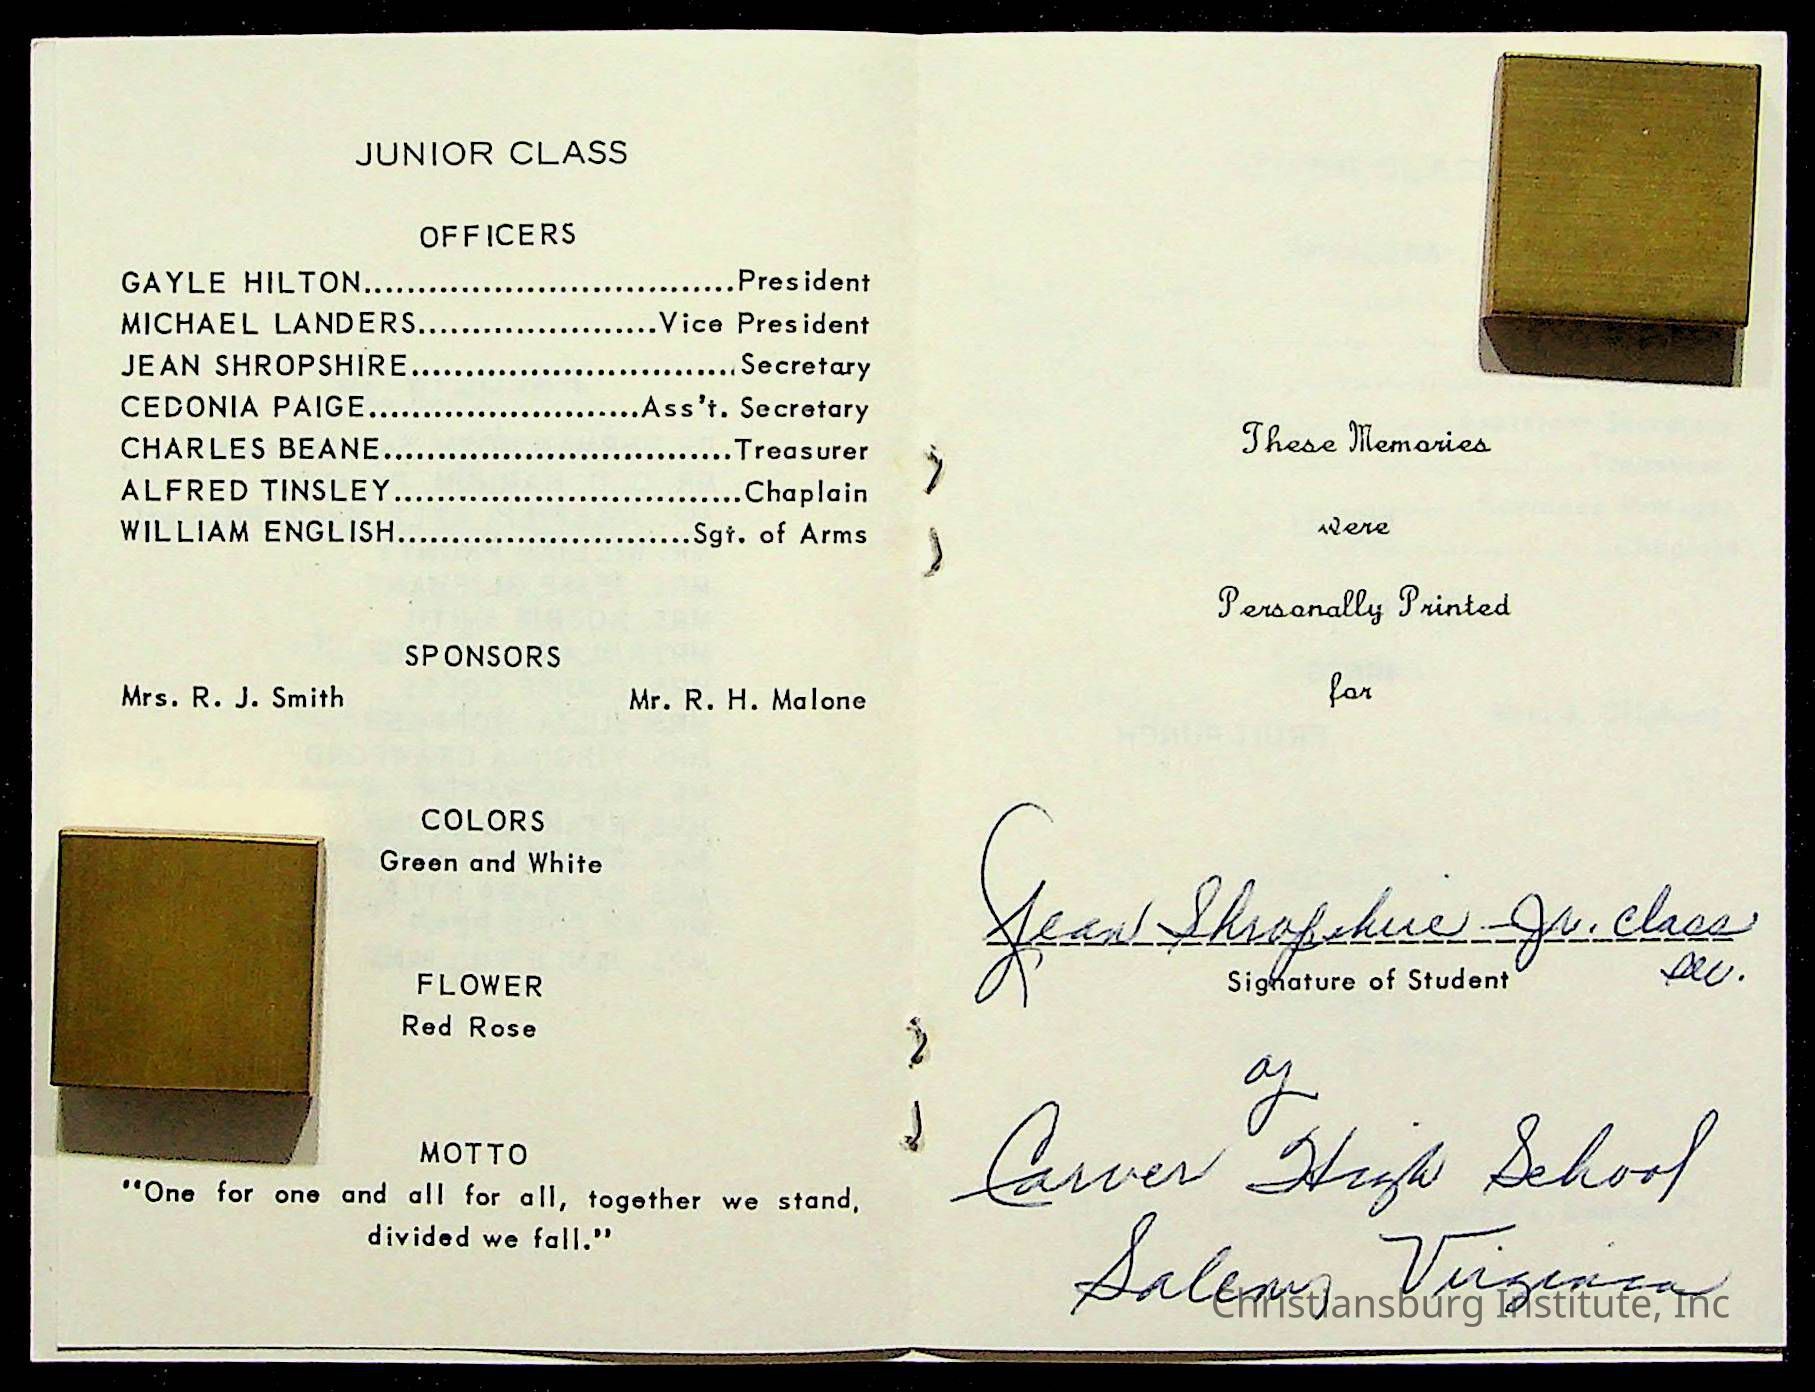 JUNIOR CLASS
OFFICERS
GAYLE HILTON..................................President
MICHAEL LANDERS......................Vice President
JEAN SHROPSHIRE..............................Secretary
CEDONIA PAIGE.........................Ass't. Secretary
CHARLES BEANE................................Treasurer
ALFRED TINSLEY................................Chaplain
WILLIAM ENGLISH...........................Sgt. of Arms
SPONSORS
Mrs. R. J. Smith Mr. R. H. Malone
COLORS
Green and White
FLOWER
Red Rose
MOTTO
"One for one and all for all, together we stand,
divided we fall."
These Memories
were
Personally Printed
for
Jean Shropshire - Jr. class
Sec.
Signature of Student
of
Carver High School
Salem, Virginia
Christiansburg Institute, Inc